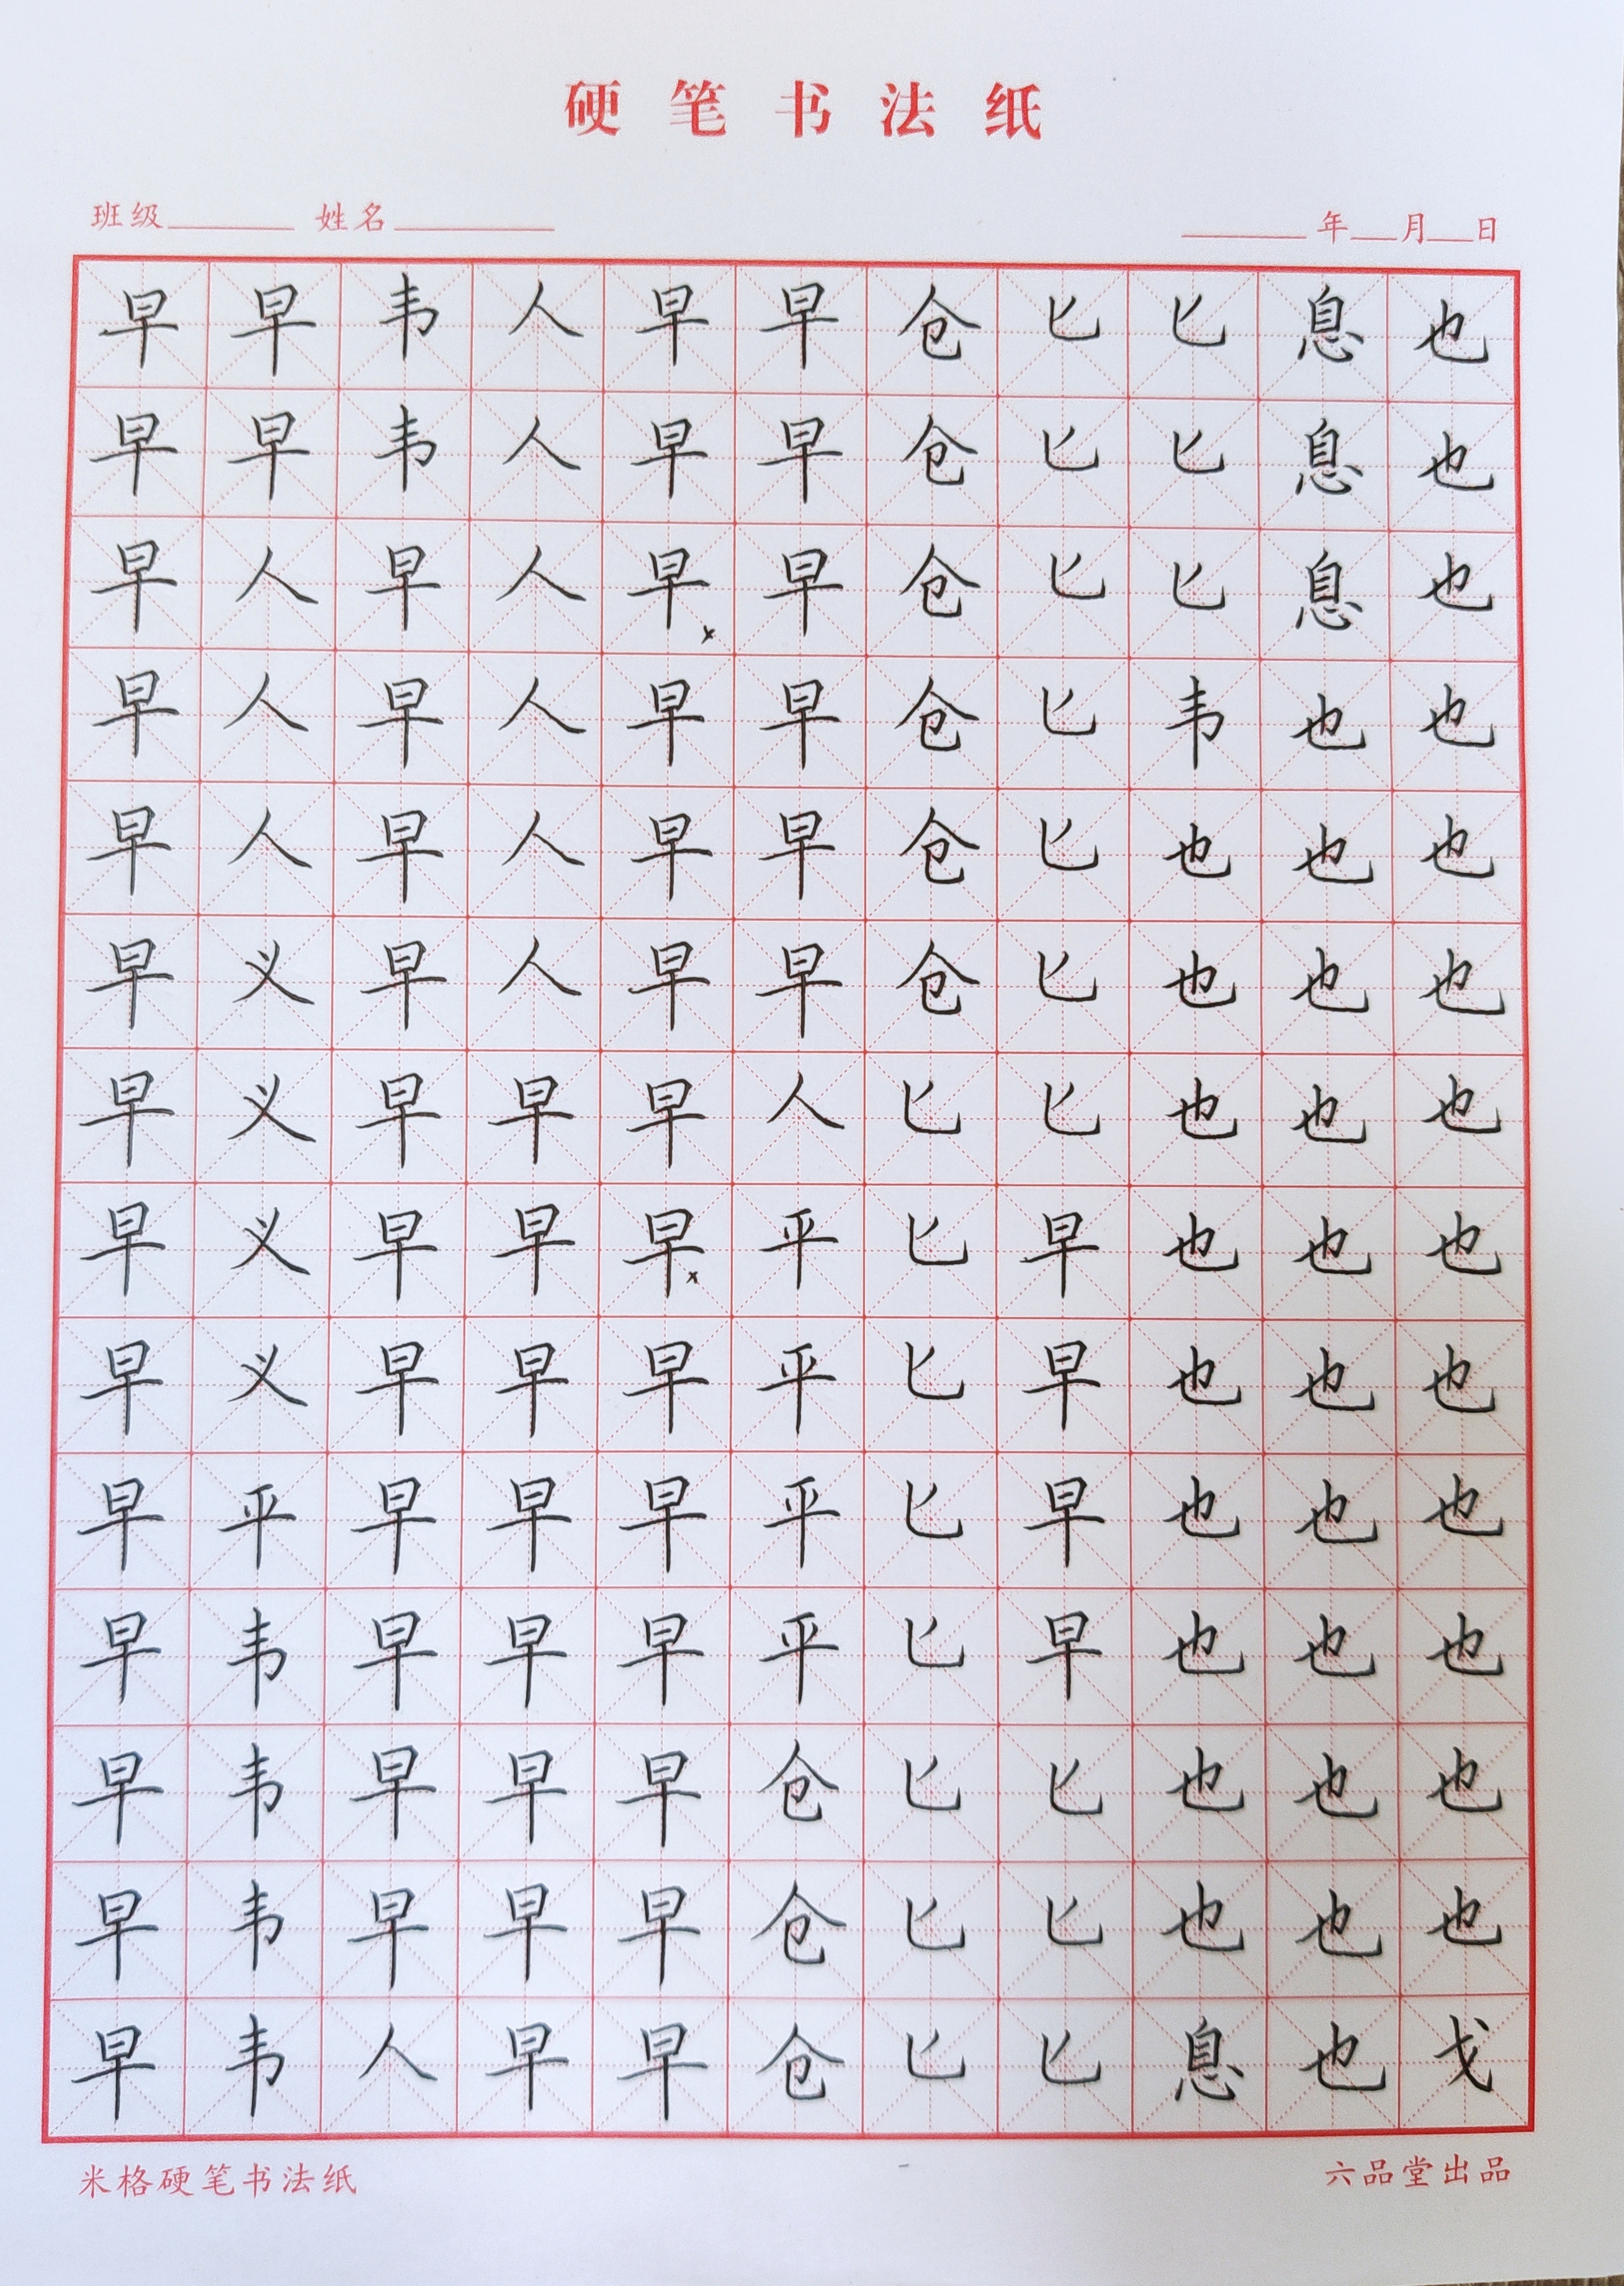 硬笔书法纸
班级 姓名 年 月 日
早早韦人早早仓匕匕息也
早早韦人早早仓匕匕息也
早人早人早早仓匕匕息也
早人早人早早仓匕韦也也
早人早人早早仓匕也也也
早义早人早早仓匕也也也
早义早早早人匕匕也也也
早义早早早平匕早也也也
早义早早早平匕早也也也
早平早早早平匕早也也也
早韦早早早平匕早也也也
早韦早早早仓匕匕也也也
早韦早早早仓匕匕也也也
早韦人早早仓匕匕息也戈
米格硬笔书法纸 六品堂出品